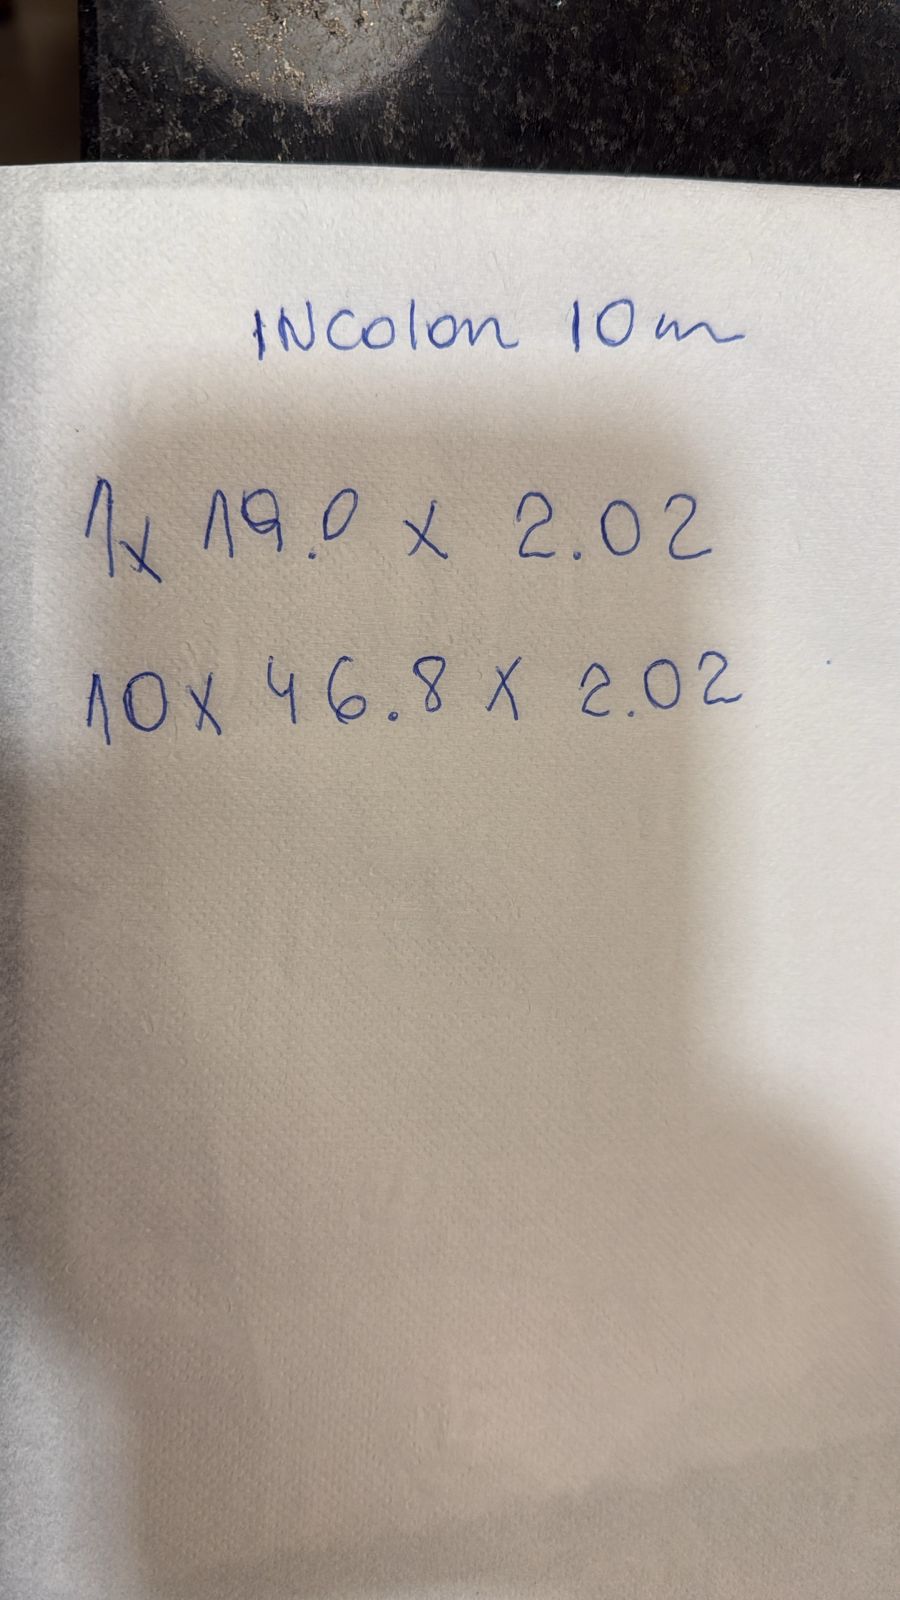 INColon 10m
1x 19.0 x 2.02
10x 46.8 x 2.02